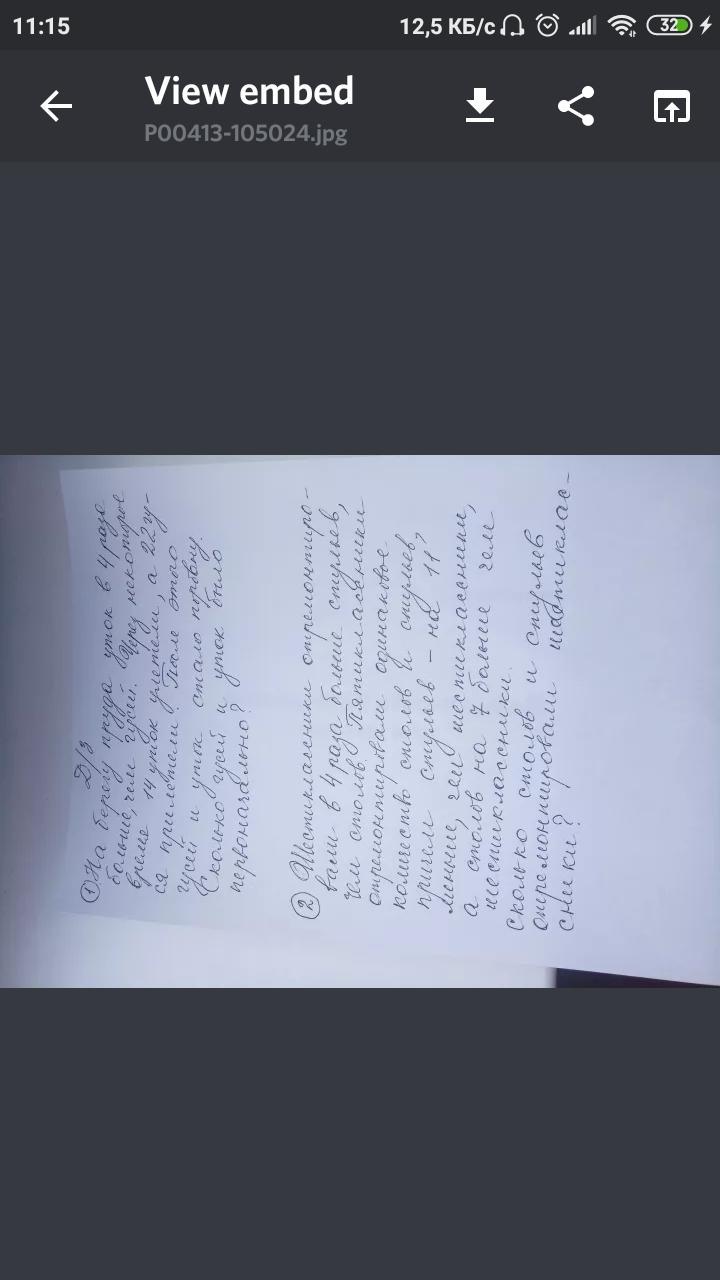 11:15
12,5 КБ/с
32
View embed
P00413-105024.jpg
Д/З
① На берегу пруда уток в 4 раза
больше, чем гусей. Через некоторое
время 14 уток улетели, а 22 гу-
ся прилетели. После этого
гусей и уток стало поровну.
Сколько гусей и уток было
первоначально?
② Шестиклассники отремонтиро-
вали в 4 раза больше стульев,
чем столов. Пятиклассники
отремонтировали одинаковое
количество столов и стульев,
причем стульев – на 11
меньше, чем шестиклассники,
а столов на 7 больше чем
шестиклассники.
Сколько столов и стульев
отремонтировали шестиклас-
сники?